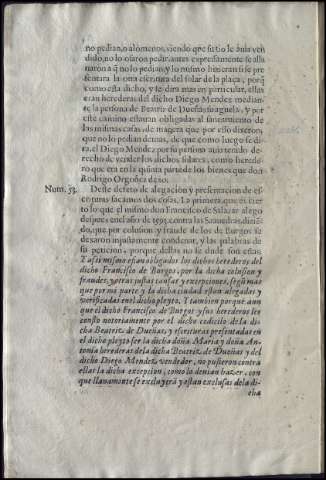 no pedian, o alomenos, viendo que su tio le auia ven
dido, no lo osaron pedir, antes expressamente se alla
naron a q̃ no lo pedian, y lo mismo hizieran si se pre
sentara la otra escritura del solar de la plaça, porq̃
como esta dicho, y se dira mas en particular, ellas
eran herederas del dicho Diego Mendez median-
te la persona de Beatriz de Dueñas su aguela, y por
este camino estauan obligadas al saneamiento de
las mismas casas, de manera que por esso dixeron,
que no lo pedian demas, de que como luego se di-
ra, el Diego Mendez por su persona auia tenido de-
recho de vender los dichos solares, como herede-
ro que era en la quinta parte de los bienes que don
Rodrigo Orgoñez dexo.
Num. 53. Deste defeto de alegacion y presentacion de es-
crituras sacamos dos cosas. La primera que es cier
to lo que el mismo don Francisco de Salazar alego
despues en el año de 1595. contra las Saauedras, dizie-
do, que por colusion y fraude de los de Burgos se
dexaron injustamente condenar, y las palabras de
su peticion, porque dellas no se dude son estas.
Y assi mismo estan obligados los dichos herederos del
dicho Francisco de Burgos, por la dicha colusion y
fraudes, y otras justas causas y excepciones, segun mas
que por mi parte y la dicha ciudad estan alegadas y
verificadas en el dicho pleyto. Y tambien porque aun
que el dicho Francisco de Burgos y sus herederos les
consto notoriamente por el dicho codicilo de la di-
cha Beatriz de Dueñas, y escrituras presentadas en
el dicho pleyto ser la dicha doña Maria y doña An-
tonia herederas de la dicha Beatriz de Dueñas y del
dicho Diego Mendez vendedor, no pusieron contra
ellas la dicha excepcion, como lo deuian hazer, con
que llanamente se excluyera y estan exclusas de la di-
cha